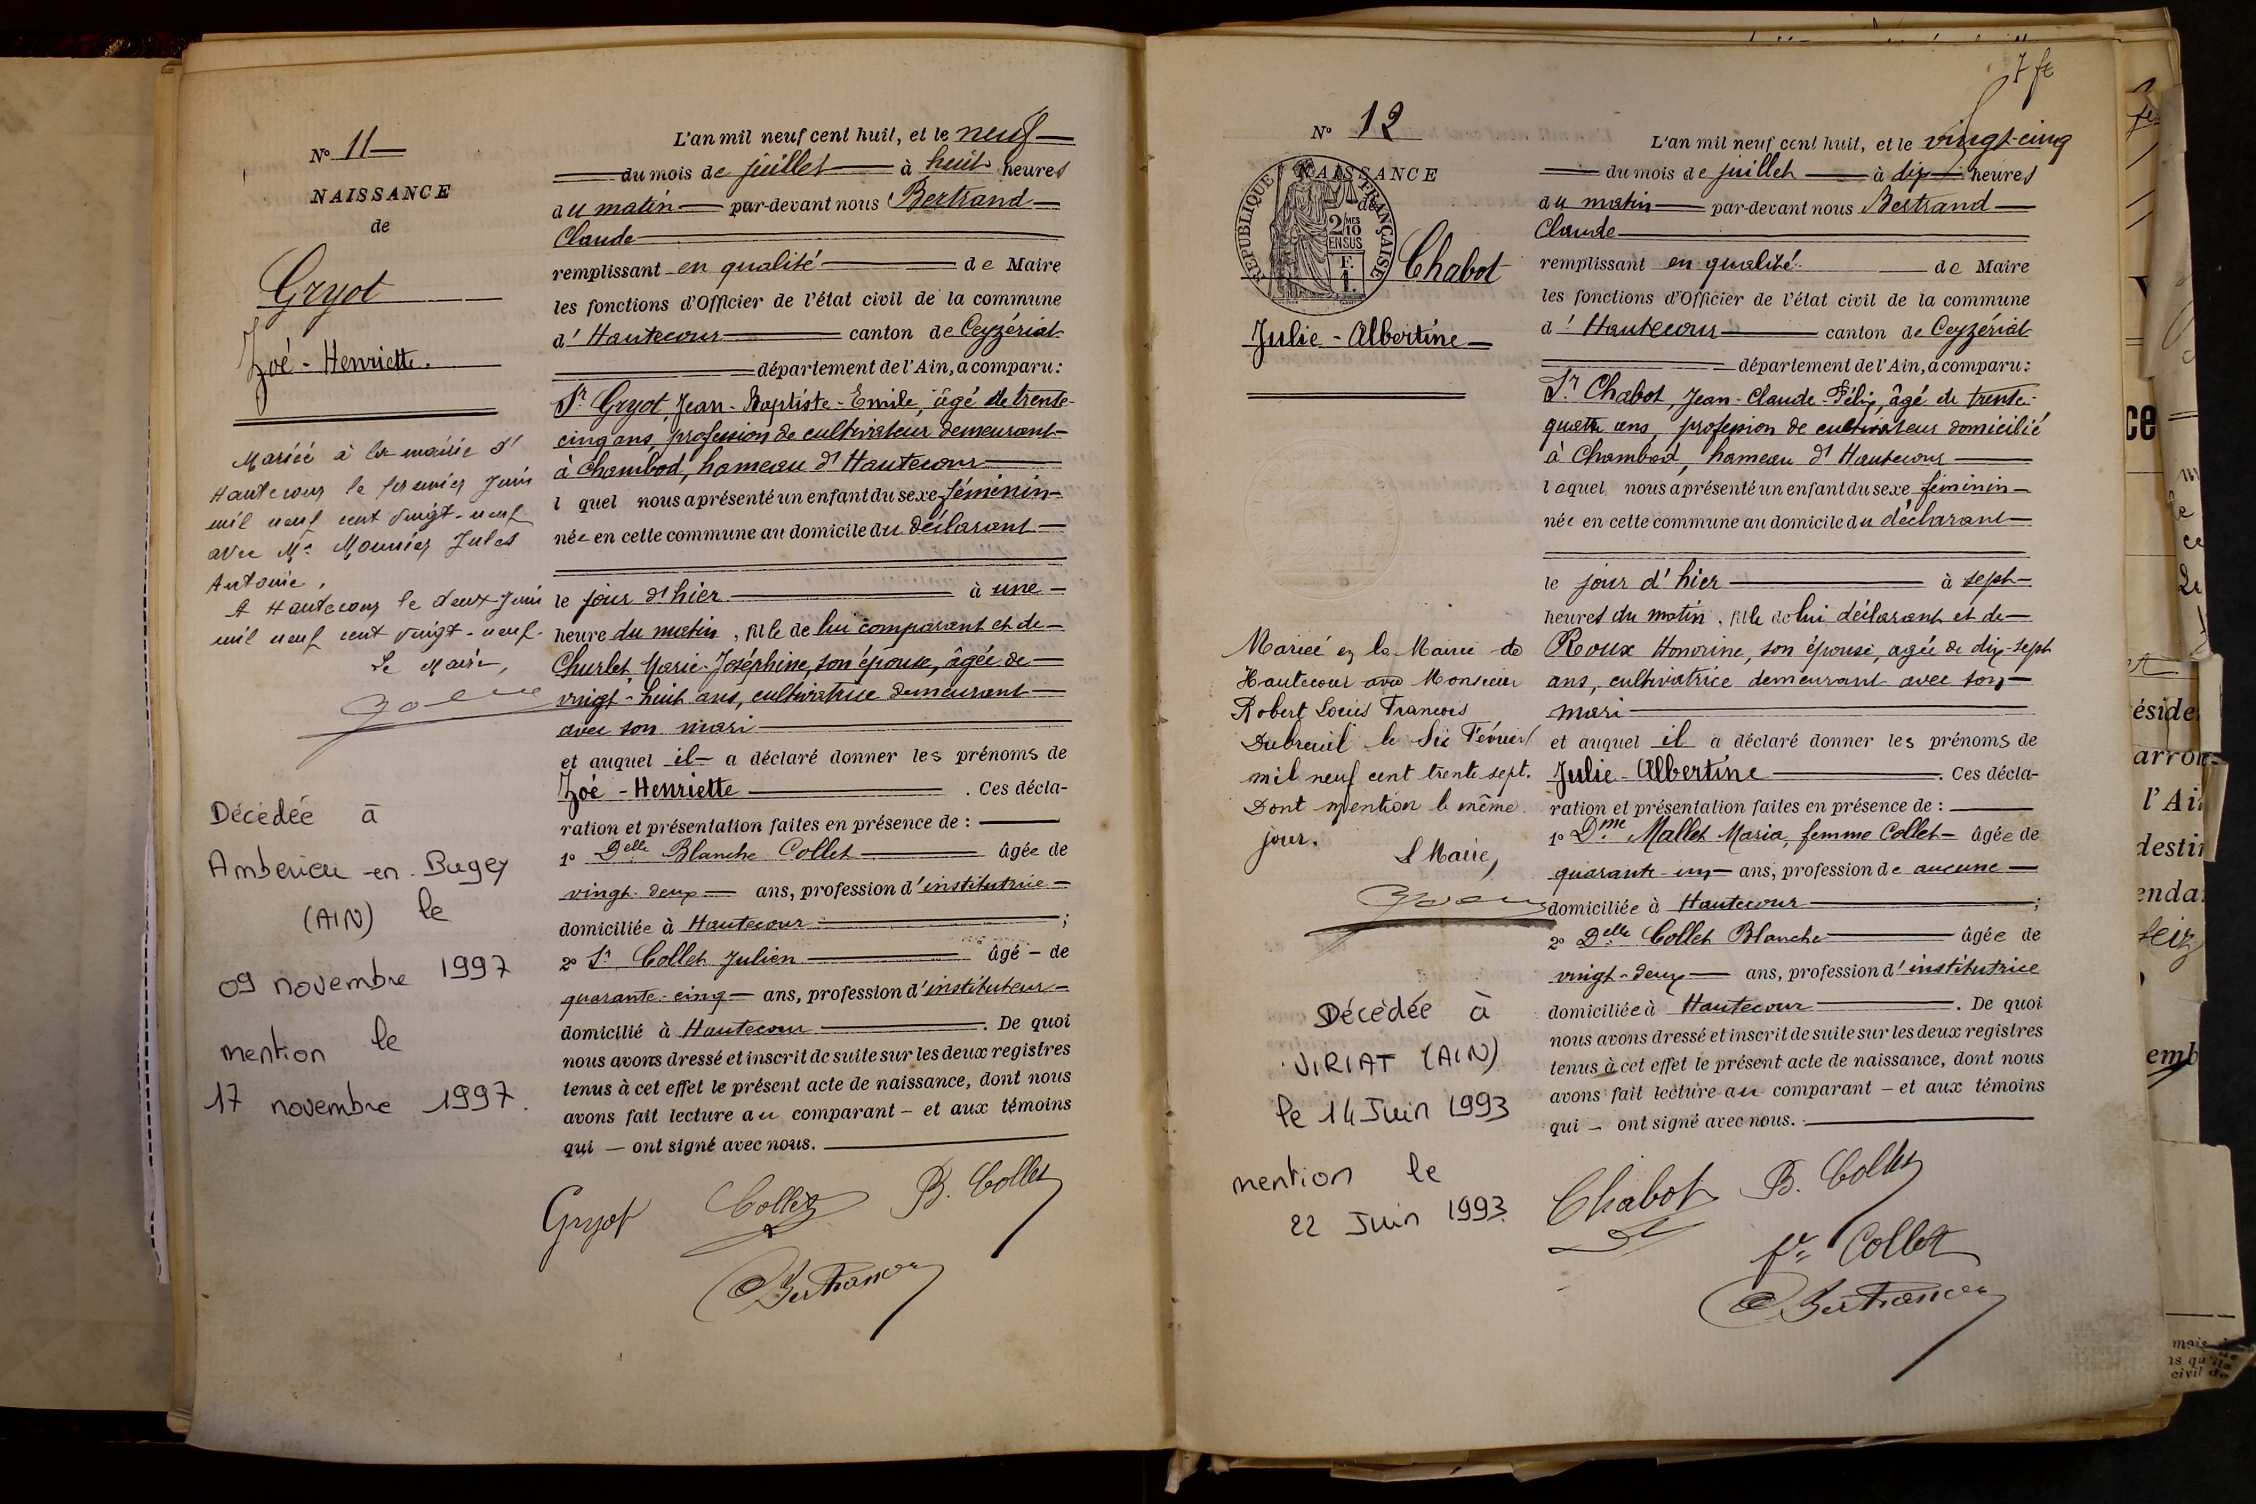 N° 11
NAISSANCE
de
Gryot
Zoé - Henriette.
Mariée à la mairie d'
Hautecour le premier Juin
mil neuf cent vingt-neuf
avec Mr Mounier Jules
Antoine.
A Hautecour le deux Juin
mil neuf cent vingt-neuf.
Le Maire,
Décédée à
Amberieu-en-Bugey
(AIN) le
09 novembre 1997
mention le
17 novembre 1997.
L'an mil neuf cent huit, et le neuf
du mois de juillet à huit heures
du matin par-devant nous Bertrand
Claude
remplissant en qualité de Maire
les fonctions d'Officier de l'état civil de la commune
d'Hautecour canton de Ceyzériat
département de l'Ain, a comparu :
Sr Gryot Jean-Baptiste-Emile, âgé de trente-
cinq ans, profession de cultivateur demeurant
à Chambod, hameau d'Hautecour
l quel nous a présenté un enfant du sexe féminin
née en cette commune au domicile du déclarant
le jour d'hier à une
heure du matin, fille de lui comparant et de
Churlet Marie-Joséphine, son épouse, âgée de
vingt-huit ans, cultivatrice demeurant
avec son mari
et auquel il a déclaré donner les prénoms de
Zoé - Henriette. Ces décla-
ration et présentation faites en présence de :
1° Delle Blanche Collet âgée de
vingt-deux ans, profession d'institutrice
domiciliée à Hautecour ;
2° Sr Collet Julien âgé - de
quarante-cinq ans, profession d'instituteur
domicilié à Hautecour. De quoi
nous avons dressé et inscrit de suite sur les deux registres
tenus à cet effet le présent acte de naissance, dont nous
avons fait lecture au comparant - et aux témoins
qui - ont signé avec nous.
Gryot Collet B. Collet
C Bertrand
7 fe
N° 12
NAISSANCE
de
REPUBLIQUE FRANÇAISE
2/10 MES
EN SUS
F.
1.
Chabot
Julie - Albertine
Mariée en la Mairie de
Hautecour avec Monsieur
Robert Louis François
Dubreuil le Six Février
mil neuf cent trente sept.
Dont mention le même
jour.
Le Maire,
Décédée à
VIRIAT (AIN)
le 14 Juin 1993
mention le
22 Juin 1993.
L'an mil neuf cent huit, et le vingt-cinq
du mois de juillet à dix heures
du matin par-devant nous Bertrand
Claude
remplissant en qualité de Maire
les fonctions d'Officier de l'état civil de la commune
d'Hautecour canton de Ceyzériat
département de l'Ain, a comparu :
Sr Chabot, Jean-Claude-Félix, âgé de trente-
quatre ans, profession de cultivateur domicilié
à Chambod, hameau d'Hautecour
lequel nous a présenté un enfant du sexe féminin
née en cette commune au domicile du déclarant
le jour d'hier à sept
heures du matin, fille de lui déclarant et de
Roux Honorine, son épouse, agée de dix-sept
ans, cultivatrice demeurant avec son
mari
et auquel il a déclaré donner les prénoms de
Julie - Albertine. Ces décla-
ration et présentation faites en présence de :
1° Dme Mallet Maria, femme Collet âgée de
quarante-un ans, profession de aucune
domiciliée à Hautecour ;
2° Delle Collet Blanche âgée de
vingt-deux ans, profession d'institutrice
domiciliée à Hautecour. De quoi
nous avons dressé et inscrit de suite sur les deux registres
tenus à cet effet le présent acte de naissance, dont nous
avons fait lecture au comparant - et aux témoins
qui - ont signé avec nous.
Chabot B. Collet
fe Collet
C Bertrand
ce
éside
arron-
l'Ai
desti
enda
emb
mais
civil de